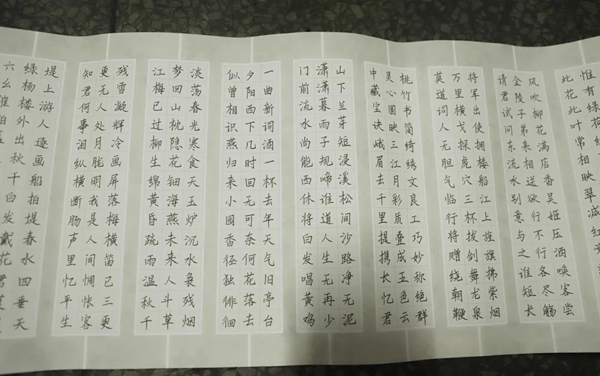 惟有绿荷
此花此叶常相映翠减红
风吹柳花满店香吴姬压酒唤客尝
金陵子弟来相送欲行不行各尽觞
请君试问东流水别意与之谁短长
将军出使拥楼船江上旌旗拂紫烟
万里横戈探虎穴三杯拔剑舞龙泉
莫道词人无胆气临行将赠绕朝鞭
桃竹书筒绮绣文良工巧妙称绝群
灵心圆映三江月彩质叠成五色云
中藏宝诀峨眉去千里提携长忆君
山下兰芽短浸溪松间沙路净无泥
潇潇暮雨子规啼谁道人生无再少
门前流水尚能西休将白发唱黄鸡
一曲新词酒一杯去年天气旧亭台
夕阳西下几时回无可奈何花落去
似曾相识燕归来小园香径独徘徊
淡荡春光寒食天玉炉沉水袅残烟
梦回山枕隐花钿海燕未来人斗草
江梅已过柳生绵黄昏疏雨湿秋千
残雪凝辉冷画屏落梅横笛已三更
更无人处月胧明我是人间惆怅客
知君何事泪纵横断肠声里忆平生
堤上游人逐画船拍堤春水四垂天
绿杨楼外出秋千白发戴花君
六幺催拍